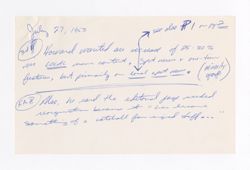 July 27, 1953
see also #1 on p 2
Howard wanted an increase of 25-30%
in local news content. Spot news & on-turn
features, but primarily on local spot news.
Also, he said the editorial page needed
invigoration because it has become
something of a catchall for canned stuff...